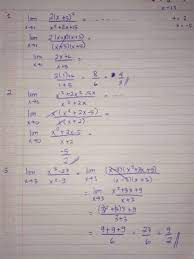 1. lim x→1 2(x+3)² / x²+2x+15 = ....
lim x→1 2(x+3)(x+3) / (x+5)(x+3)
lim x→1 2x+6 / x+5
2(1)+6 / 1+5 = 8/6 = 4/3 //
2. lim x→0 x³+2x²-5x / x²+2x = ....
lim x→0 x(x²+2x-5) / x(x+2)
lim x→0 x²+2x-5 / x+2
-5/2 //
3 lim x→3 x³-27 / x²-9 = lim x→3 (x-3)(x²+3x+9) / (x-3)(x+3)
= lim x→3 x²+3x+9 / x+3
= (3)²+3·3+9 / 3+3
= 9+9+9 / 6 = 27/6 = 9/2 //